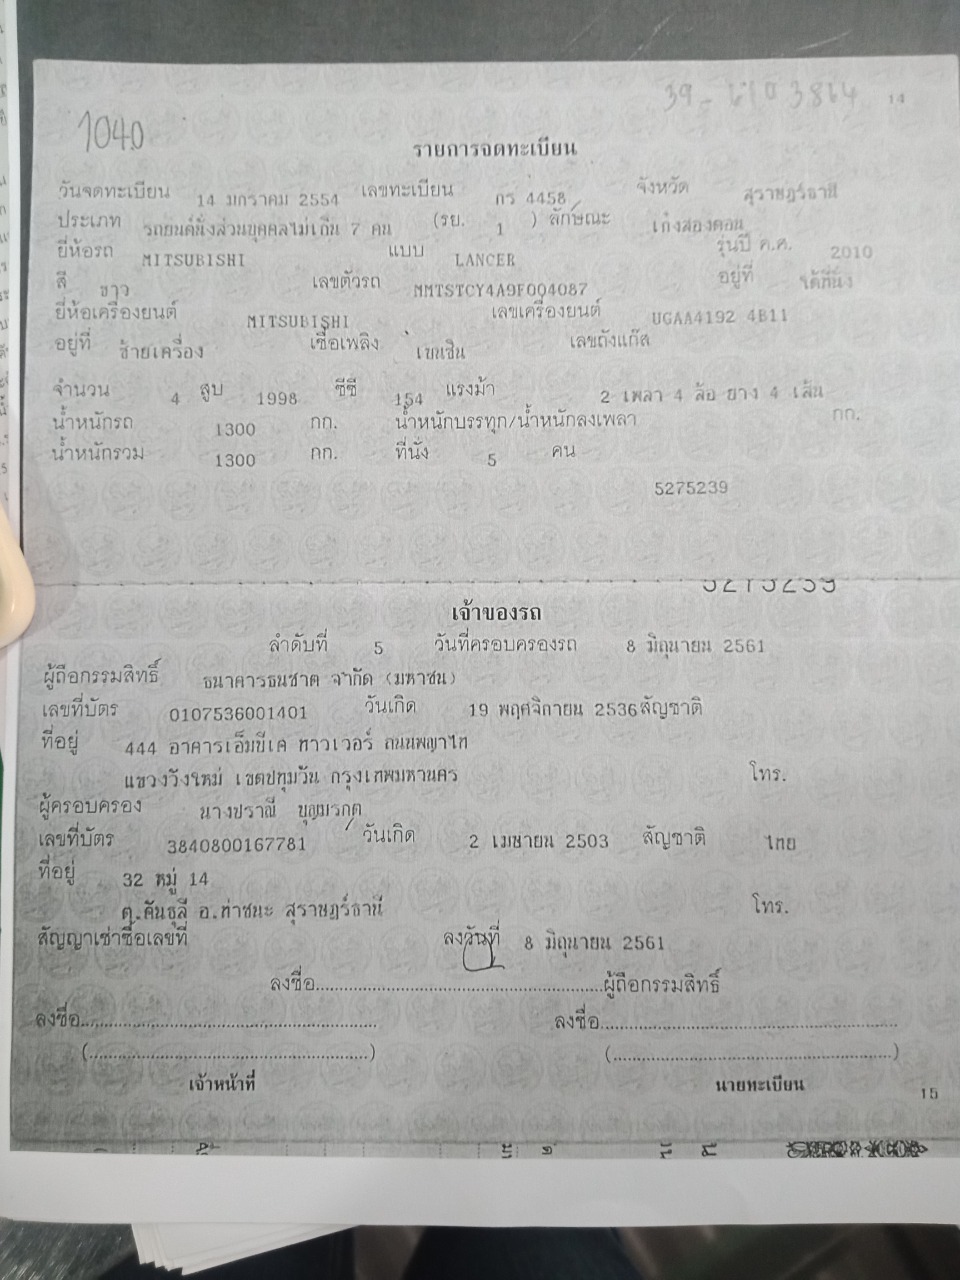 14
1040
รายการจดทะเบียน
วันจดทะเบียน 14 มกราคม 2554 เลขทะเบียน กร 4458 จังหวัด สุราษฎร์ธานี
ประเภท รถยนต์นั่งส่วนบุคคลไม่เกิน 7 คน (รย. 1 ) ลักษณะ เก๋งสองตอน
ยี่ห้อรถ MITSUBISHI แบบ LANCER รุ่นปี ค.ศ. 2010
สี ขาว เลขตัวรถ MMTSTCY4A9F004087 อยู่ที่ ใต้ที่นั่ง
ยี่ห้อเครื่องยนต์ MITSUBISHI เลขเครื่องยนต์ UGAA4192 4B11
อยู่ที่ ซ้ายเครื่อง เชื้อเพลิง เบนซิน เลขถังแก๊ส
จำนวน 4 สูบ 1998 ซีซี 154 แรงม้า 2 เพลา 4 ล้อ ยาง 4 เส้น
น้ำหนักรถ 1300 กก. น้ำหนักบรรทุก/น้ำหนักลงเพลา กก.
น้ำหนักรวม 1300 กก. ที่นั่ง 5 คน
5275239
5275239
เจ้าของรถ
ลำดับที่ 5 วันที่ครอบครองรถ 8 มิถุนายน 2561
ผู้ถือกรรมสิทธิ์ ธนาคารธนชาต จำกัด (มหาชน)
เลขที่บัตร 0107536001401 วันเกิด 19 พฤศจิกายน 2536 สัญชาติ
ที่อยู่ 444 อาคารเอ็มบีเค ทาวเวอร์ ถนนพญาไท
แขวงวังใหม่ เขตปทุมวัน กรุงเทพมหานคร โทร.
ผู้ครอบครอง นางปราณี บุญมรกต
เลขที่บัตร 3840800167781 วันเกิด 2 เมษายน 2503 สัญชาติ ไทย
ที่อยู่ 32 หมู่ 14
ต.คันธุลี อ.ท่าชนะ สุราษฎร์ธานี โทร.
สัญญาเช่าซื้อเลขที่ ลงวันที่ 8 มิถุนายน 2561
ลงชื่อ............ผู้ถือกรรมสิทธิ์
ลงชื่อ............ ลงชื่อ............
(............) (............)
เจ้าหน้าที่ นายทะเบียน
15